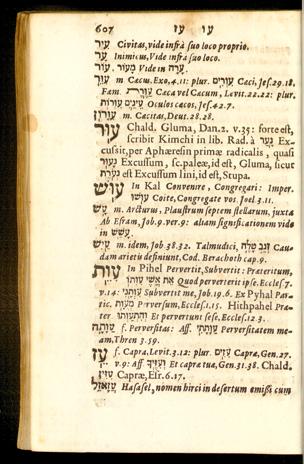 607 עו עז
עִיר Civitas, vide infrà suo loco proprio.
עָר Inimicus, Vide infrà suo loco.
עוֹר מָעוֹר Vide in עָרָה
עִוֵּר m Cæcus, Exo, 4.11: plur. עִוְרִים Cæci, Jes. 29. 18.
Fæm. Cæca vel Cæcum, Levit. 22. 22: plur.
עֵינַיִם עִוְרוֹת Oculos cæcos, Jes. 42. 7.
עִוָּרוֹן m. Cæcitas, Deut. 28. 28.
עוּר Chald. Gluma, Dan. 2. v. 35: forte est,
scribit Kimchi in lib. Rad. à נער Ex-
cussit, per Aphæresin primæ radicalis, quasi
Excussum, sc. paleæ, id est, Gluma, sicut
נְעֹרֶת est Excussum lini, id est, Stupa.
עוּשׁ In Kal Convenire, Congregari: Imper.
עוּשׁוּ Coite, Congregate vos. Joel 3. 11.
עָשׁ m. Arcturus, Plaustrum septem stellarum, juxta
Ab Esram, Job. 9. ver. 9: aliam significationem vide
in עשש
עַיִשׁ m. idem, Job 38. 32. Talmudici, זנב טלה Cau-
dam arietu definiunt, Cod. Berachoth cap. 9.
עוּת In Pihel Pervertit, Subvertit: Præteritum,
Quod perverterit ipse. Eccles. 7.
v. 14: עִוְּתַנִי Subvertit me, Job. 19. 6. Ex Pyhal Par-
tic. מְעֻוָּת Perversum, Eccles. 1. 15. Hithpahel Præ-
ter וְהִתְעַוְּתוּ Et pervertunt sese, Eccles. 12. 3.
עַוָּתָה f. Perversitas: Aff. עַוָּתָתִי Perversitatem me-
am, Thren 3. 59.
עֵז f. Capra, Levit. 3. 12: plur. עִזִּים Capræ, Gen. 27.
v. 9: Aff וְעִזֶּיךָ Et capræ tuæ, Gen. 31. 38. Chald.
עִזִּין Capræ, Esr. 6. 17.
עֲזָאזֵל Hasasel, nomen hirci in desertum emissi cum